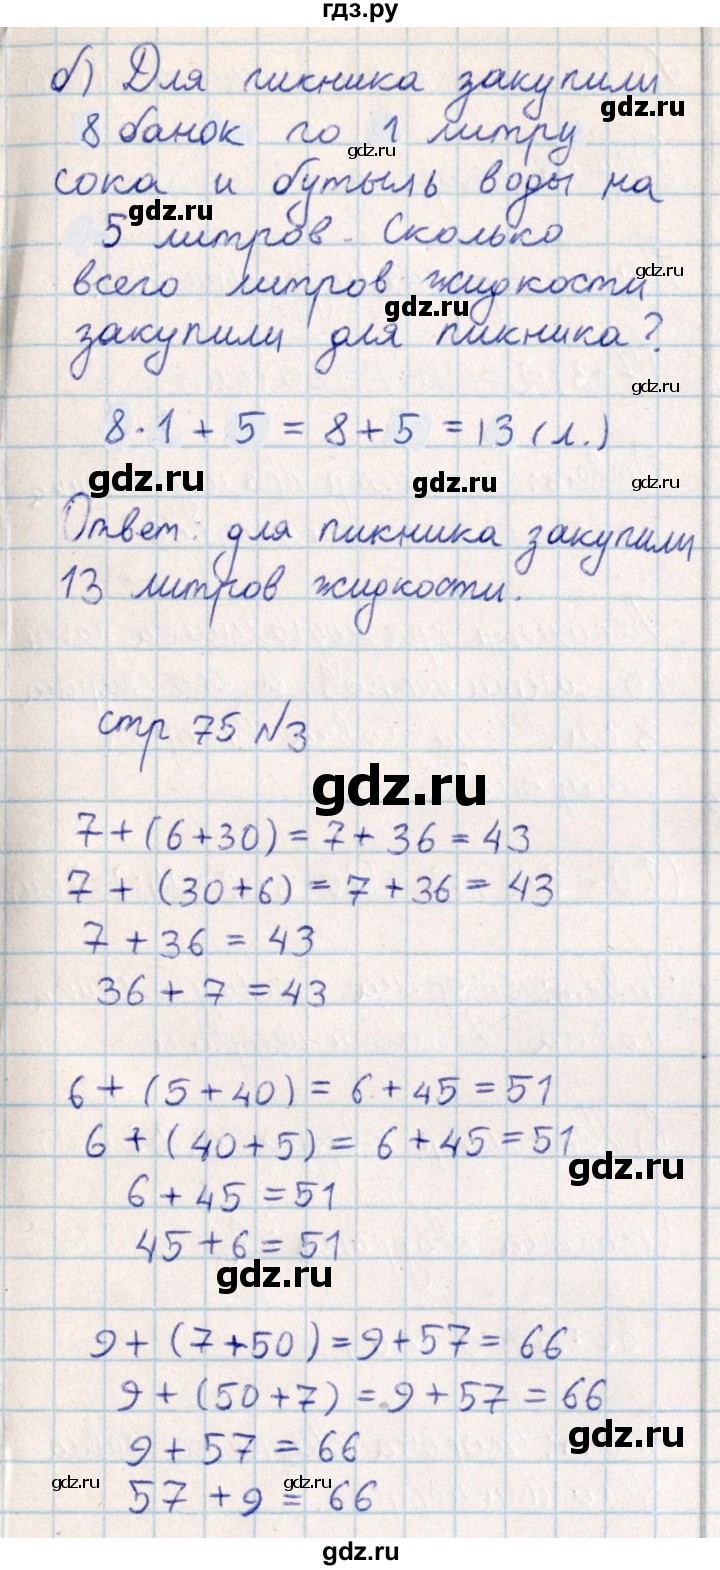 гдз.ру
б) Для пикника закупили
gdz.ru
8 банок по 1 литру
gdz.ru
сока и бутыль воды на
gdz.ru
5 литров. Сколько
gdz.ru
всего литров жидкости
gdz.ru
закупили для пикника?
gdz.ru
8·1 + 5 = 8+5 = 13 (л.)
gdz.ru gdz.ru gdz.ru
Ответ: для пикника закупили
13 литров жидкости.
стр 75 №3
gdz.ru
7+(6+30) = 7+36 = 43
7 + (30+6) = 7+36 = 43
7 + 36 = 43
36 + 7 = 43
6 + (5+40) = 6+45 = 51
6 + (40+5) = 6+45 = 51
gdz.ru
6+45 = 51
45+6 = 51
gdz.ru
9+ (7+50) = 9+57 = 66
9+(50+7) = 9+57 = 66
gdz.ru
9+57 = 66
gdz.ru gdz.ru
57 +9 = 66
gdz.ru